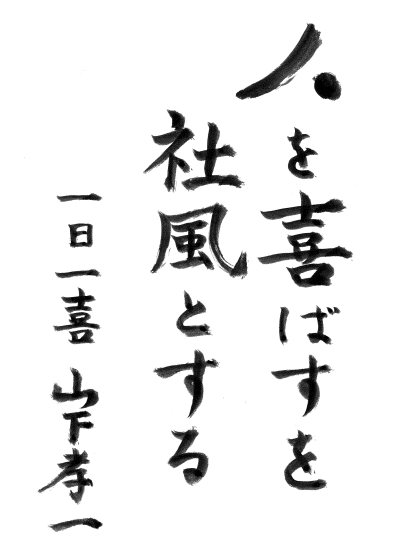 人を喜ばすを
社風とする
一日一喜 山下孝一